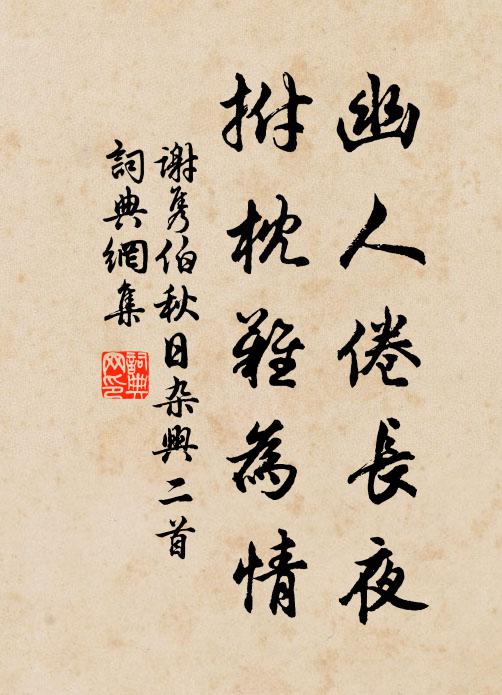 幽人倦長夜
拊枕難為情
謝隽伯秋日杂興二首
詞典網集
詞典
网印